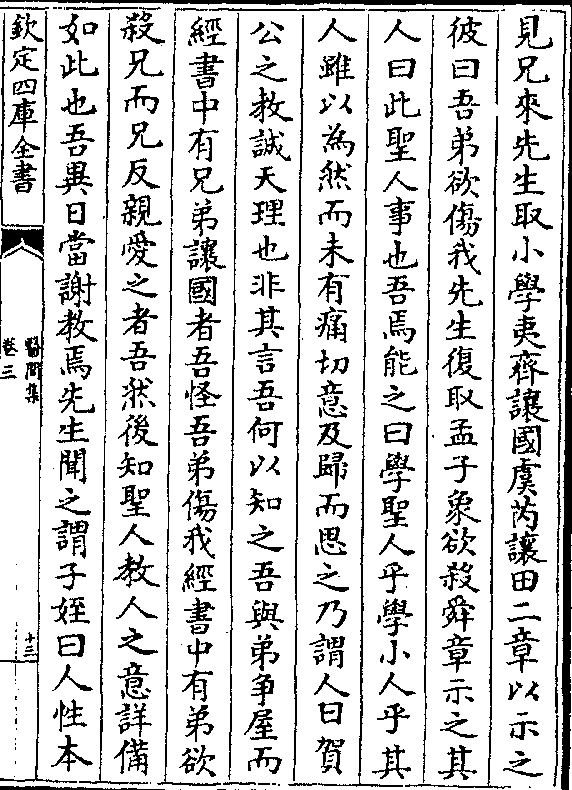 見兄來先生取小學夷齊讓國虞芮讓田二章以示之
彼曰吾弟欲傷我先生復取孟子象欲殺舜章示之其
人曰此聖人事也吾焉能之曰學聖人乎學小人乎其
人雖以為然而未有痛切意及歸而思之乃謂人曰賀
公之教誠天理也非其言吾何以知之吾與弟爭屋而
經書中有兄弟讓國者吾怪吾弟傷我經書中有弟欲
殺兄而兄反親愛之者吾然後知聖人教人之意詳備
如此也吾異日當謝教焉先生聞之謂子姪曰人性本
欽定四庫全書
醫閭集
卷三
十三